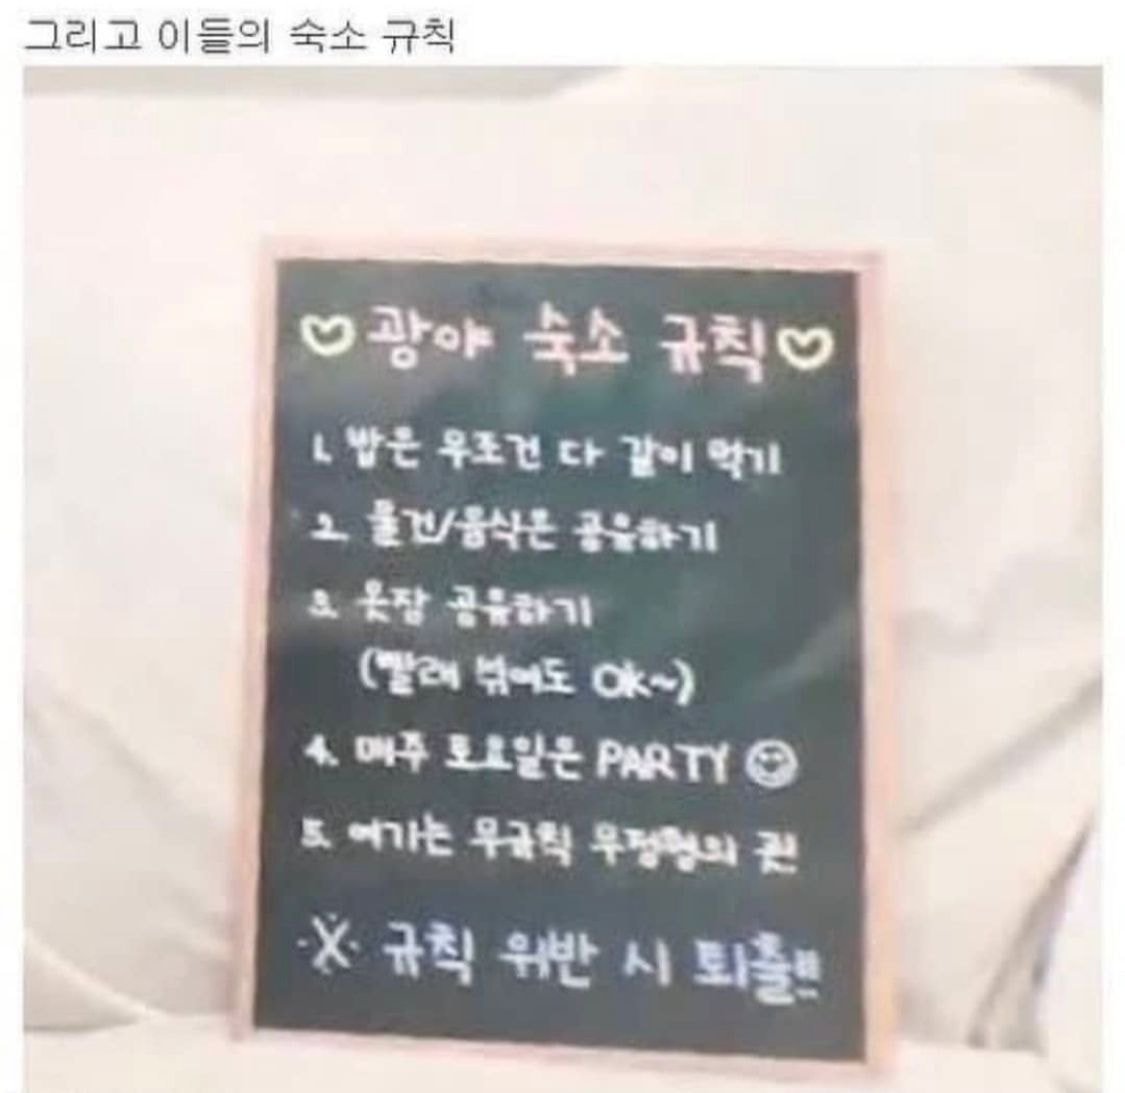 그리고 이들의 숙소 규칙
♡광야 숙소 규칙♡
1. 밥은 무조건 다 같이 먹기
2. 물건/음식은 공유하기
3. 옷장 공유하기
(빨래 섞여도 Ok~)
4. 매주 토요일은 PARTY ☺
5. 여기는 무규칙 무정형의 곳!
※ 규칙 위반 시 퇴출!!